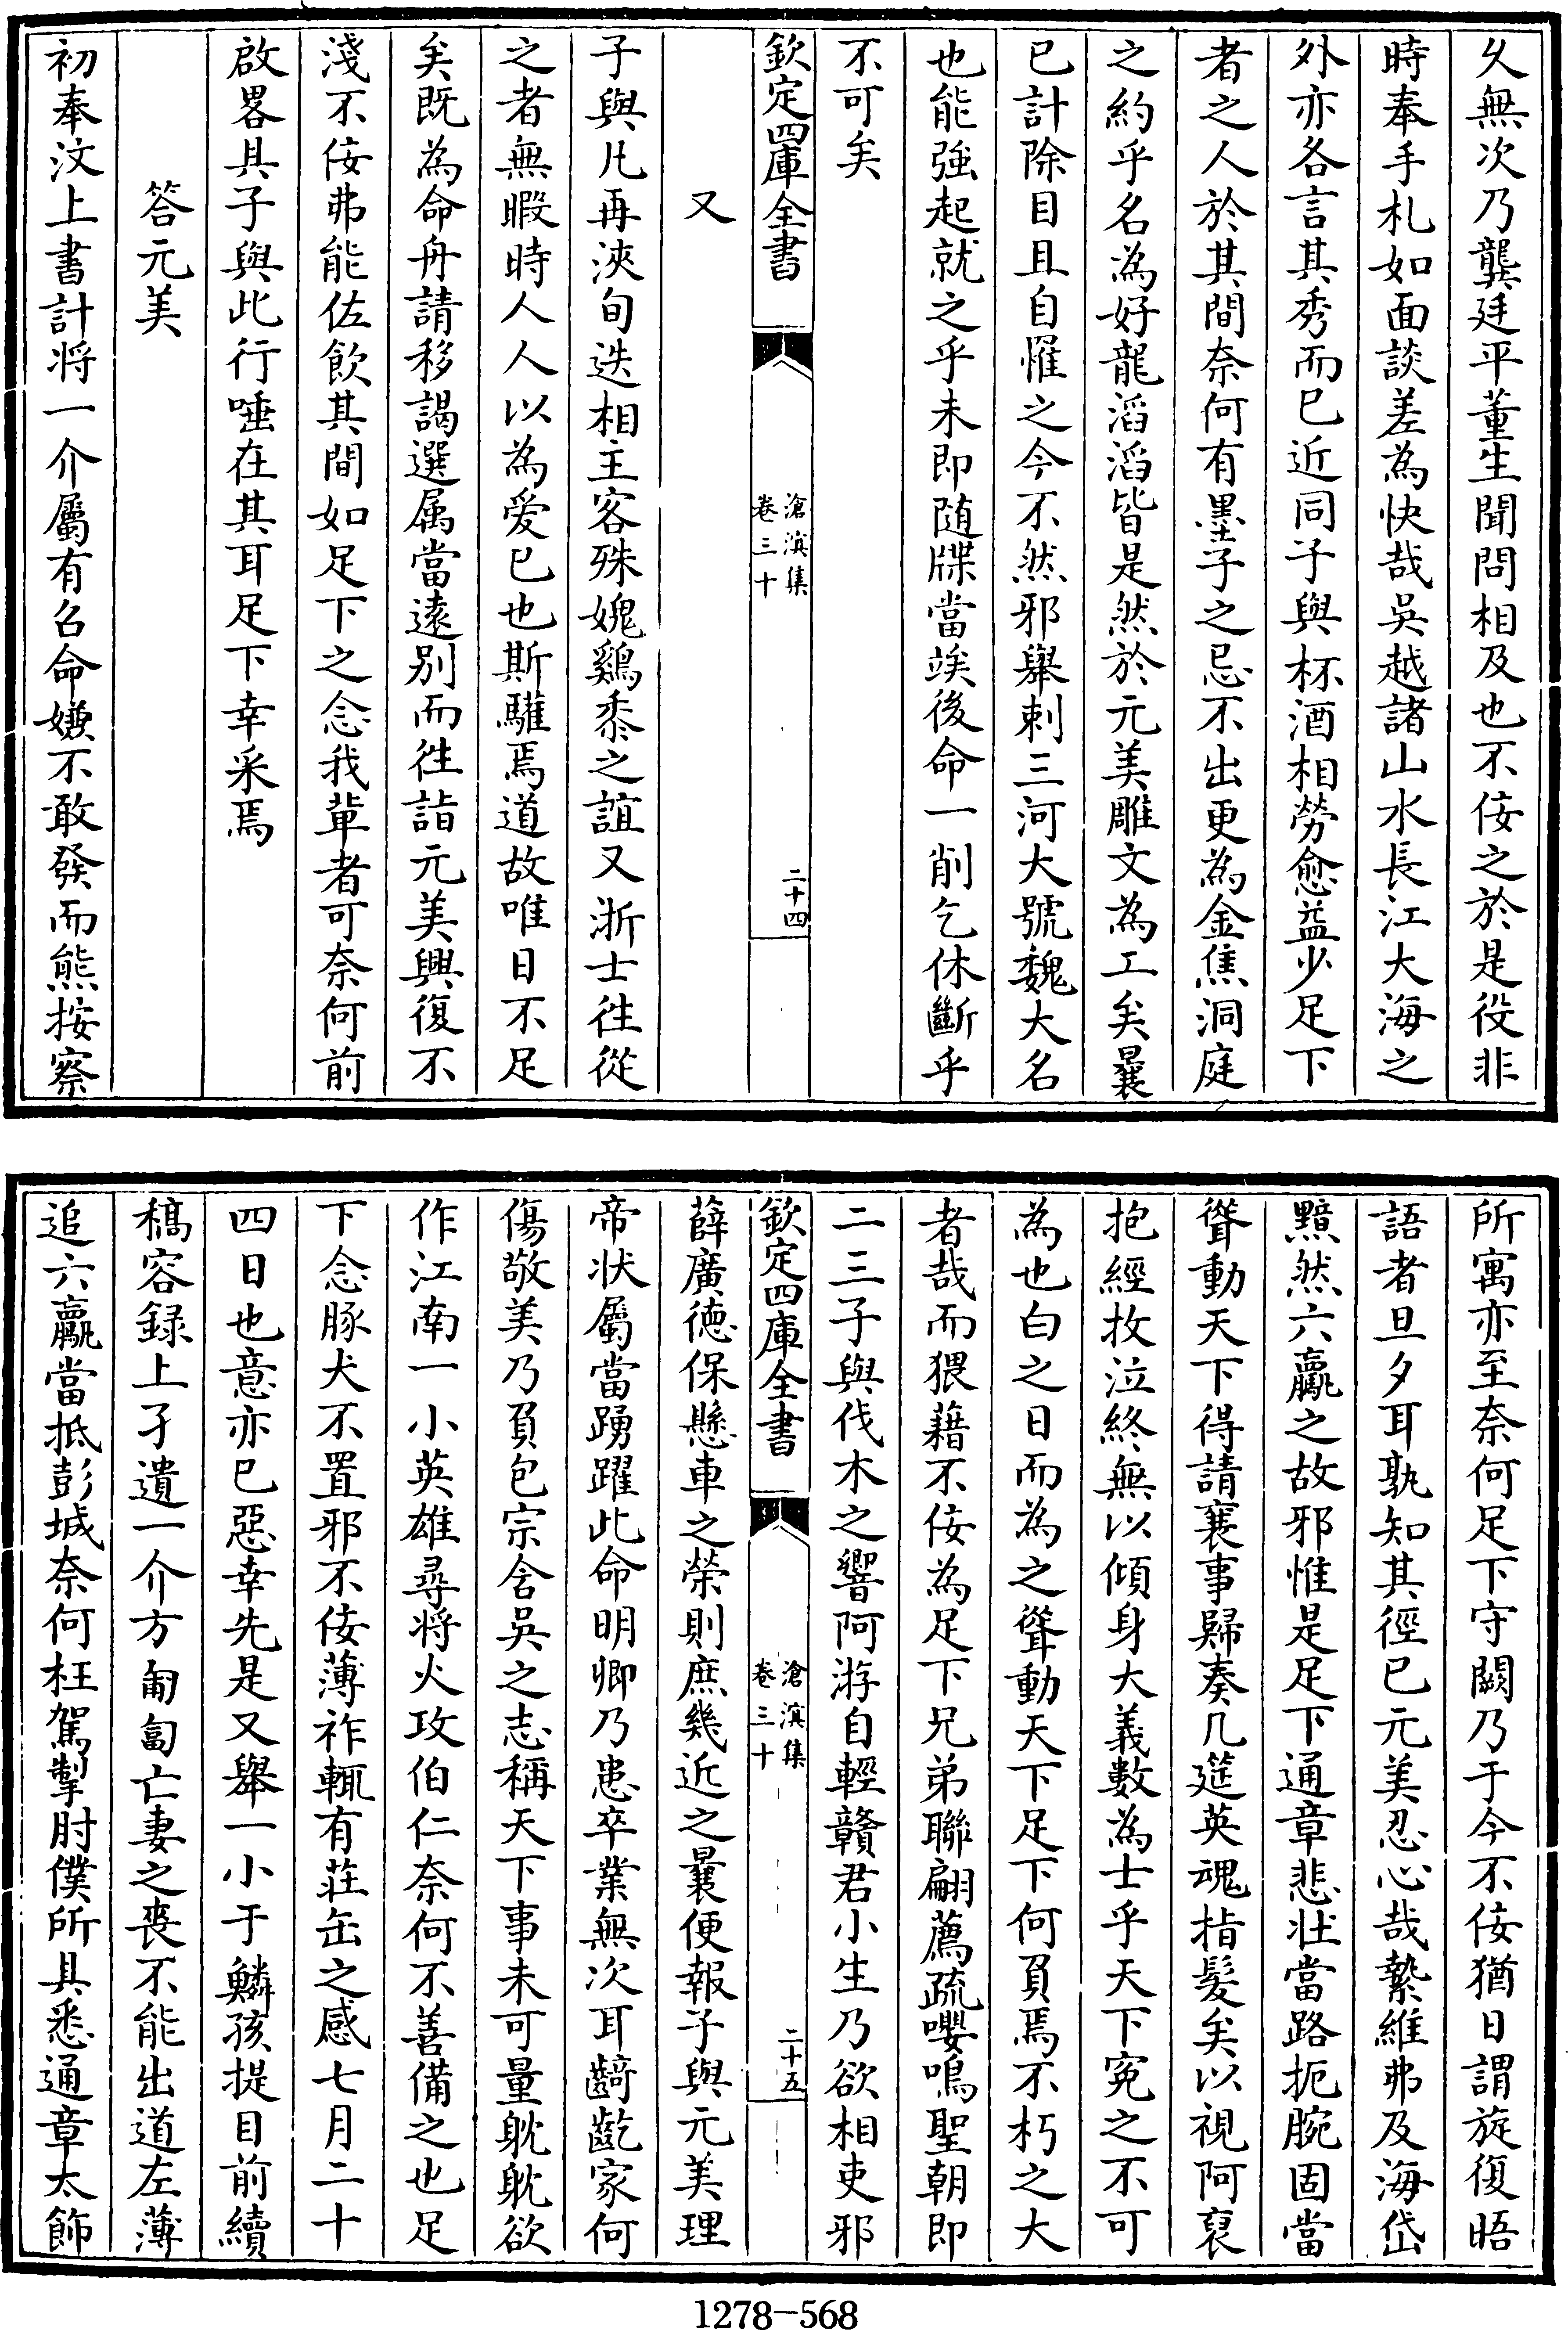 久無次乃龔廷平董生聞問相及也不佞之於是役非
時奉手札如面談差為快哉吳越諸山水長江大海之
外亦各言其秀而已近同子與杯酒相勞愈益少足下
者之人於其間奈何有墨子之忌不出更為金焦洞庭
之約乎名為好龍滔滔皆是然於元美雕文為工矣曩
已計除目且自惟之今不然邪舉刺三河大號魏大名
也能強起就之乎未即随牒當竢後命一削乞休斷乎
不可矣
欽定四庫全書
滄溟集
卷三十
二十四
又
子與凡再浹旬迭相主客殊媿鷄黍之誼又浙士徃從
之者無暇時人人以為爱已也斯騹焉道故唯日不足
矣既為命舟請移謁選属當逺别而徃詣元美興復不
淺不佞弗能佐飲其間如足下之念我軰者可奈何前
啟畧具子與此行唾在其耳足下幸采焉
答元美
初奉汶上書計将一介屬有召命嫌不敢發而熊按察
所寓亦至奈何足下守闕乃于今不佞猶日謂旋復晤
語者旦夕耳孰知其徑已元美忍心哉縶維弗及海岱
黯然六驘之故邪惟是足下通章悲壮當路扼腕固當
聳動天下得請襄事歸奏几筵英魂指髮矣以視阿裒
抱經抆泣終無以傾身大義數為士乎天下寃之不可
為也白之日而為之聳動天下足下何負焉不朽之大
者哉而猥藉不佞為足下兄弟聯翩薦疏嚶鳴聖朝即
二三子與伐木之響阿游自輕贛君小生乃欲相吏邪
欽定四庫全書
滄溟集
卷三十
二十五
薛廣徳保懸車之榮則庶幾近之曩便報子與元美理
帝状屬當踴躍此命明卿乃患卒業無次耳齮齕家何
傷敬美乃負包宗含吳之志稱天下事未可量躭躭欲
作江南一小英雄尋将火攻伯仁奈何不善備之也足
下念豚犬不置邪不佞薄祚輒有荘缶之感七月二十
四日也意亦已惡幸先是又舉一小于鱗孩提目前續
稿容録上孑遺一介方匍匐亡妻之喪不能出道左薄
追六驘當抵彭城奈何枉駕掣肘僕所具悉通章太飾
1278-568